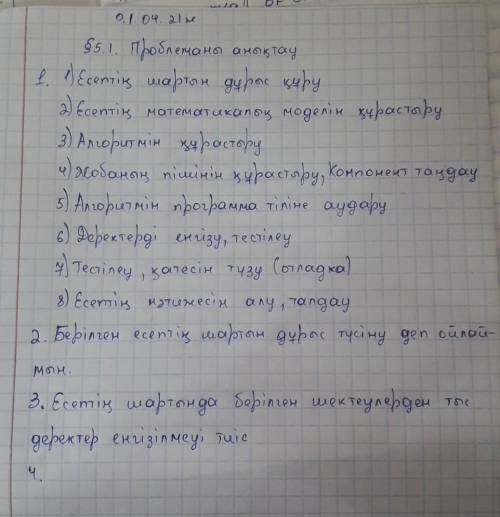 0.1 04. 21ж
§5.1. Проблеманы анықтау
1. 1) Есептің шартын дұрыс құру
2) Есептің математикалық моделін құрастыру
3) Алгоритмін құрастыру
4) Жобаның пішінін құрастыру, Компонент таңдау
5) Алгоритмін программа тіліне аудару
6) Деректерді енгізу, тестілеу
7) Тестілеу, қатесін түзу (отладка)
8) Есептің нәтижесін алу, талдау
2. Берілген есептің шартын дұрыс түсіну деп ойлай-
мын.
3. Есептің шартында берілген шектеулерден тыс
деректер енгізілмеуі тиіс
4.